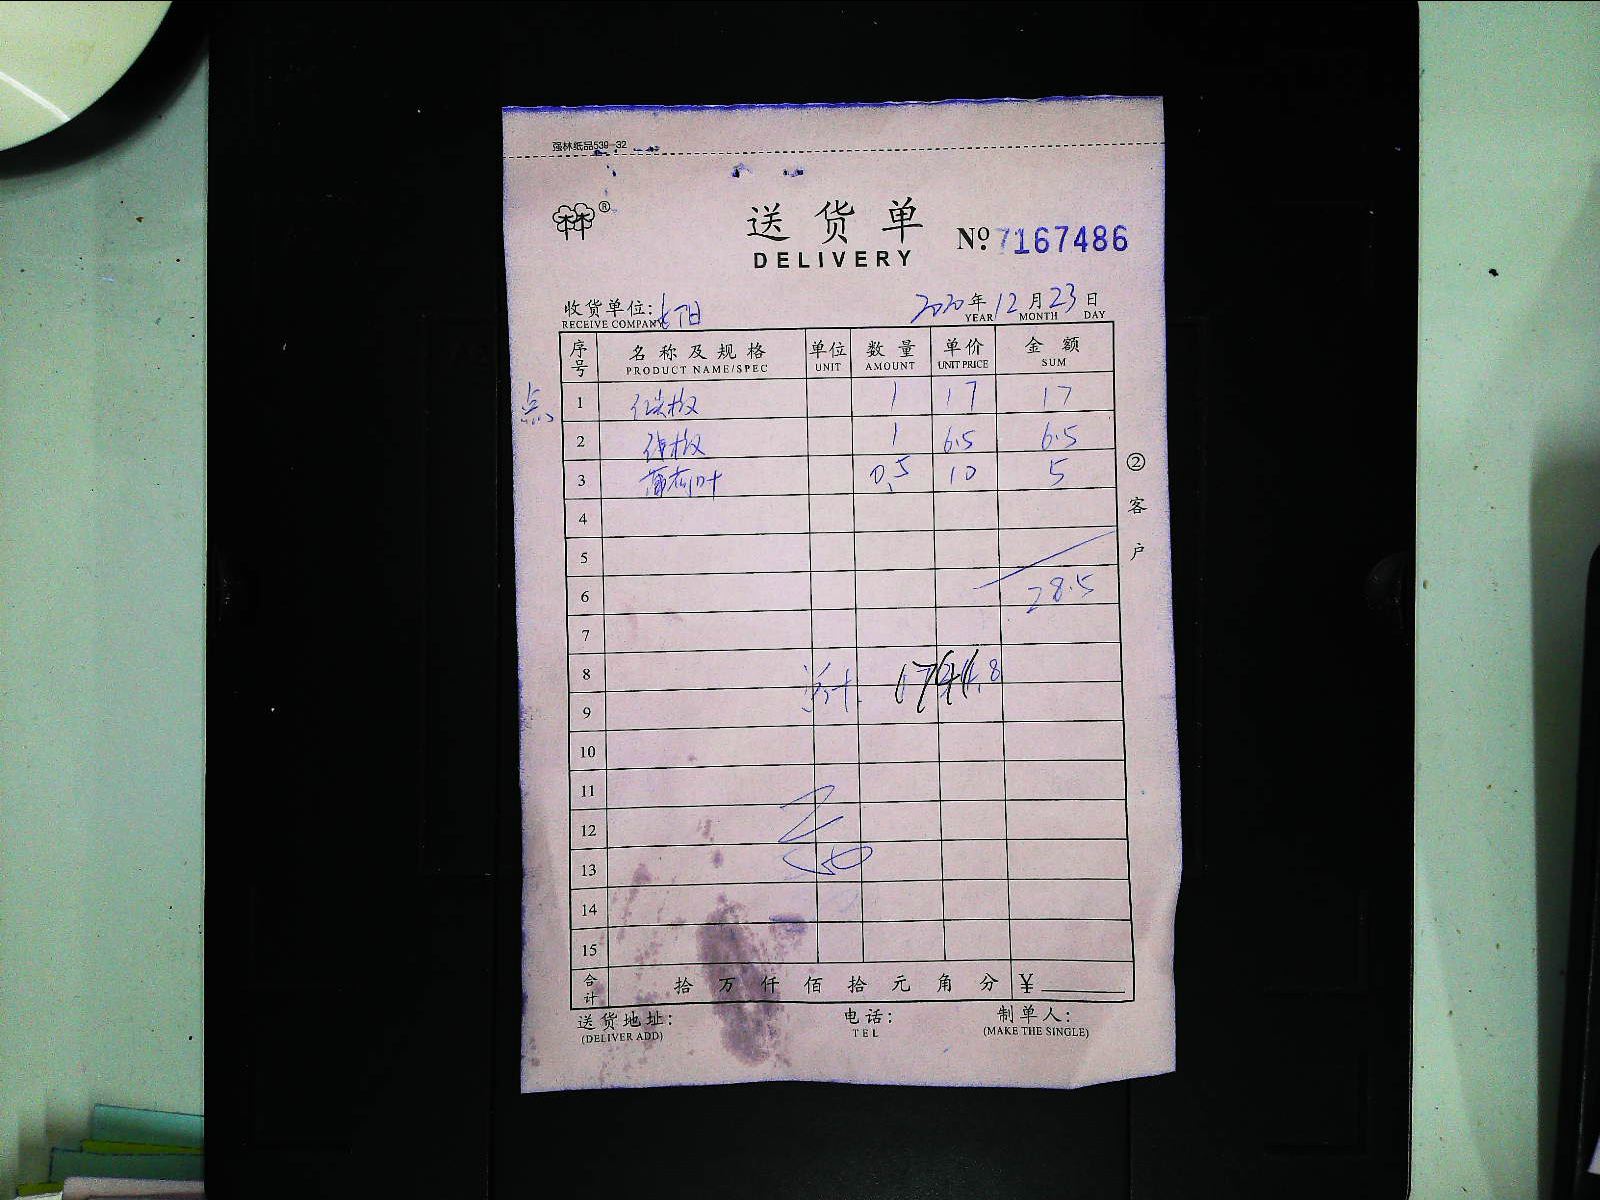 强林纸品539-32
®
送货单
DELIVERY
№ 7167486
收货单位:
RECEIVE COMPANY
2020年12月23日
YEAR MONTH DAY
序号 名称及规格 单位 数量 单价 金额
PRODUCT NAME/SPEC UNIT AMOUNT UNIT PRICE SUM
点
1 1 17 17
2 1 6.5 6.5
3 薄荷叶 0.5 10 5
4
5
6 28.5
7
8 总计
9
10
11
12
13
14
15
② 客户
合计 拾 万 仟 佰 拾 元 角 分 ¥
送货地址: 电话: 制单人:
(DELIVER ADD) TEL (MAKE THE SINGLE)